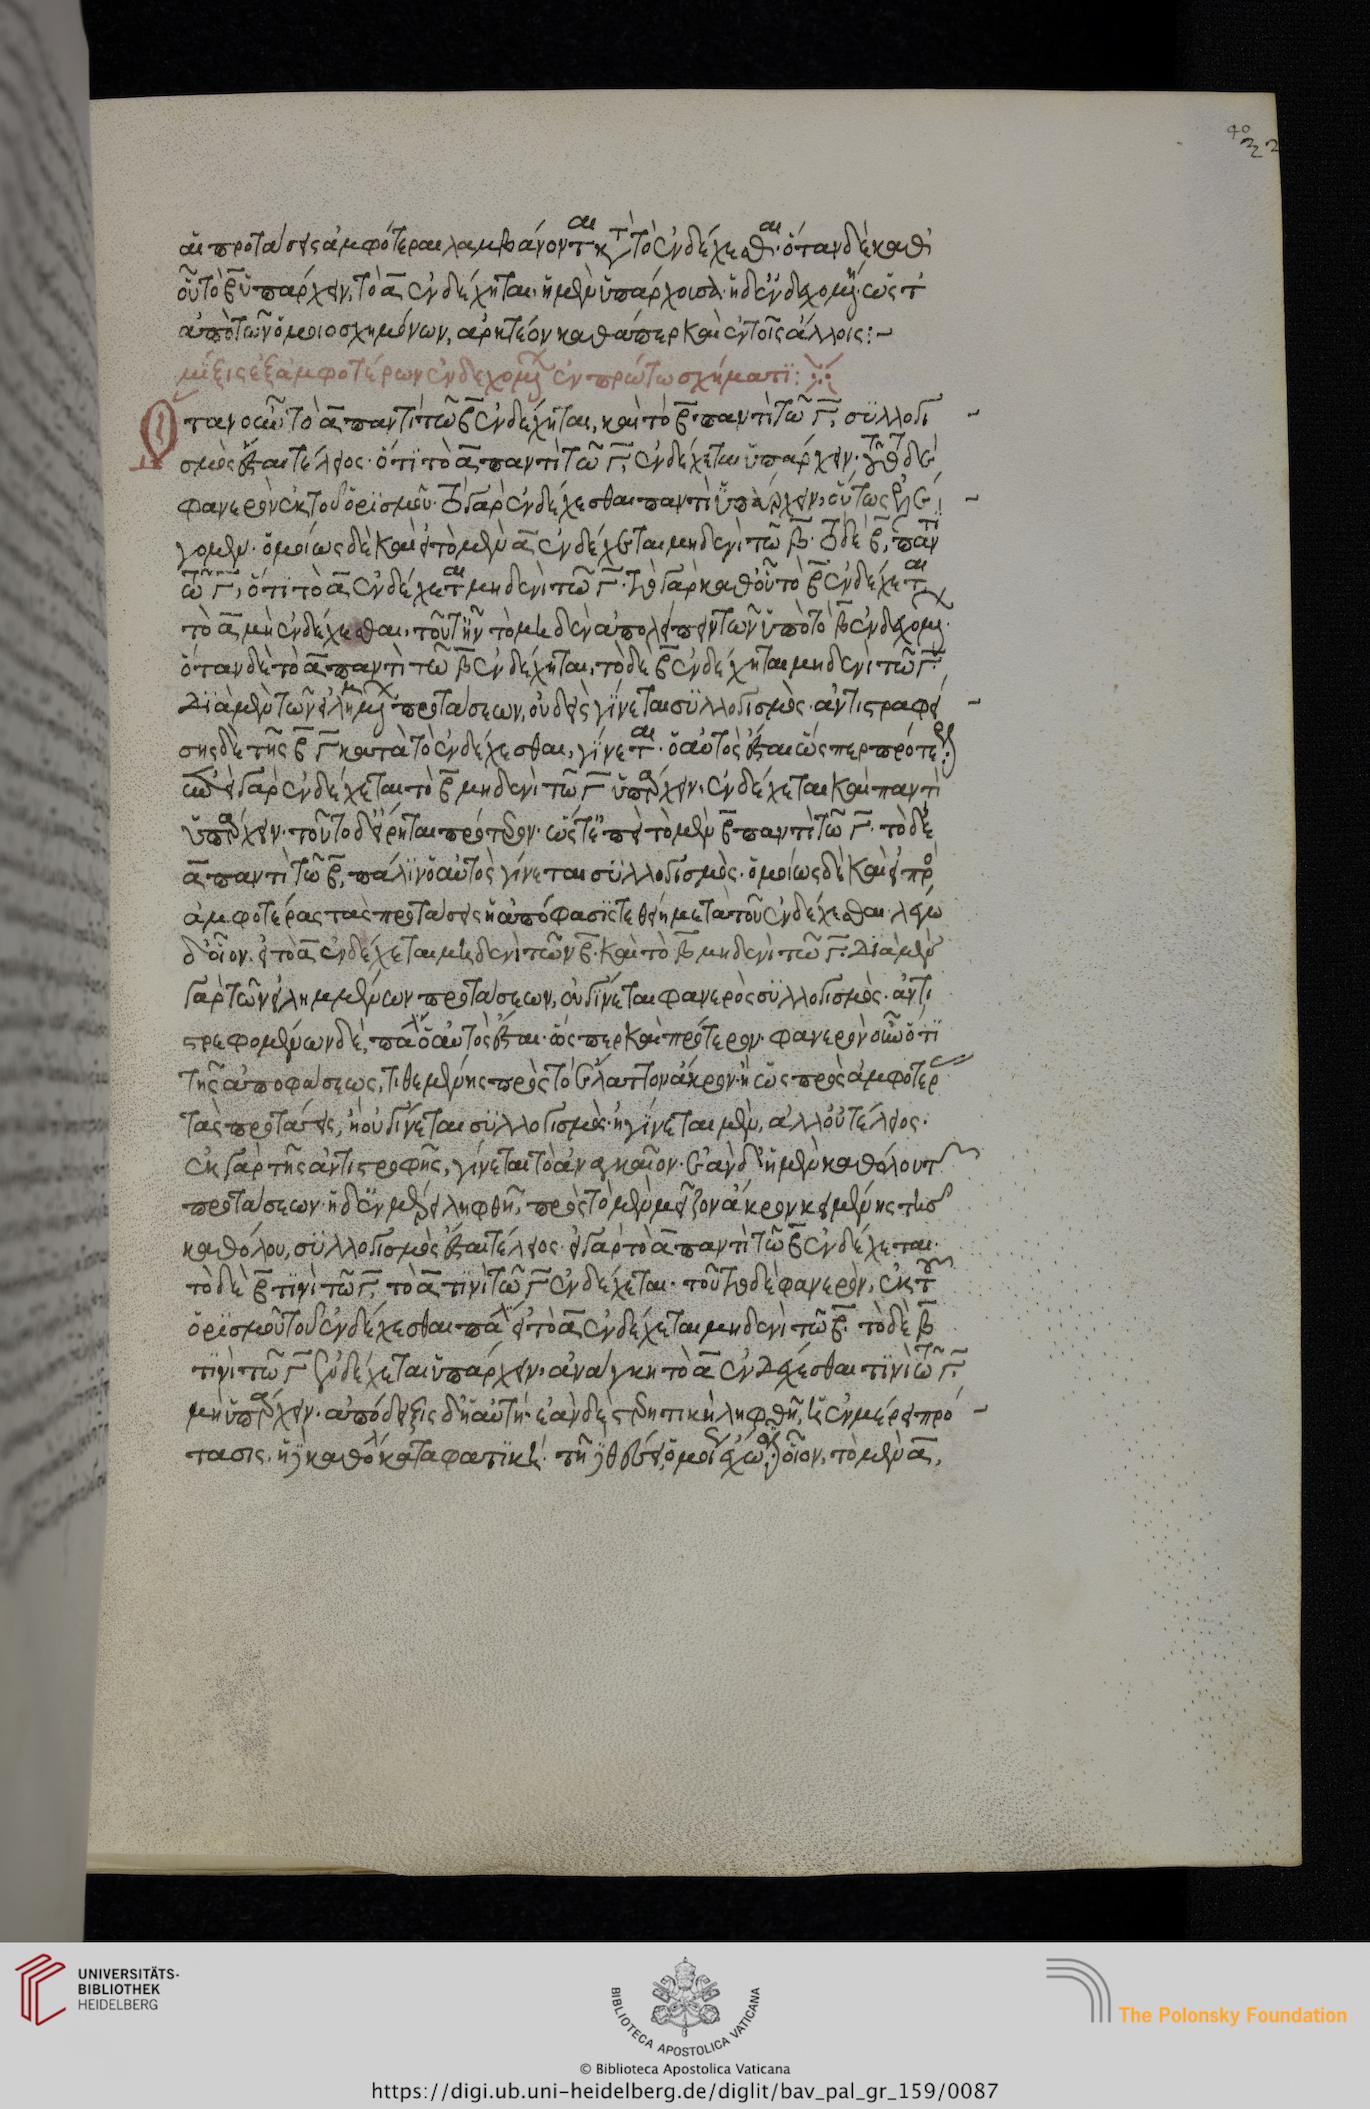 αἱ προτάσεις ἀμφότεραι λαμβάνονται κατὰ τὸ ἐνδέχεσθαι· ὅταν δὲ καθ'
οὗ τὸ β ὑπάρχειν, τὸ α ἐνδέχηται, ἡ μὲν ὑπάρχουσα, ἡ δ' ἐνδεχομένη· ὥστ'
ἀπὸ τῶν ὁμοιοσχημόνων, ἀρκτέον καθάπερ καὶ ἐν τοῖς ἄλλοις:-
μῖξις ἐξ ἀμφοτέρων ἐνδεχομένων ἐν πρώτω σχήματι:
Ὅταν οὖν τὸ α παντὶ τῶ β ἐνδέχηται, καὶ τὸ β παντὶ τῶ γ, συλλογι
σμὸς ἔσται τέλειος· ὅτι τὸ α παντὶ τῶ γ ἐνδέχεται ὑπάρχειν· τοῦτο δὲ
φανερὸν ἐκ τοῦ ὁρισμοῦ· τὸ γὰρ ἐνδέχεσθαι παντὶ ὑπάρχειν, οὕτως ἐλέ
γομεν· ὁμοίως δὲ καὶ εἰ τὸ μὲν α ἐνδέχεται μηδενὶ τῶ β· τὸ δὲ β, παντὶ
τῶ γ, ὅτι τὸ α ἐνδέχεται μηδενὶ τῶ γ· τὸ γὰρ καθ' οὗ τὸ β ἐνδέχεται
τὸ α μὴ ἐνδέχεσθαι, τοῦτ' ἦν τὸ μηδὲν ἀπολείπειν τῶν ὑπὸ τὸ β ἐνδεχομένων·
ὅταν δὲ τὸ α παντὶ τῶ β ἐνδέχηται, τὸ δὲ β ἐνδέχηται μηδενὶ τῶ γ
διὰ μὲν τῶν εἰλημμένων προτάσεων, οὐδεὶς γίνεται συλλογισμὸς· ἀντιστραφεί
σης δὲ τῆς β γ κατὰ τὸ ἐνδέχεσθαι, γίνεται ὁ αὐτὸς ἔσται ὥσπερ πρότερον·
ἐπεὶ γὰρ ἐνδέχεται τὸ β μηδενὶ τῶ γ ὑπάρχειν, ἐνδέχεται καὶ παντὶ
ὑπάρχειν· τοῦτο δ' εἴρηται πρότερον· ὥστ' εἰ τὸ μὲν β παντὶ τῶ γ· τὸ δὲ
α παντὶ τῶ β, πάλιν ὁ αὐτὸς γίνεται συλλογισμὸς· ὁμοίως δὲ καὶ εἰ πρὸς
ἀμφοτέρας τὰς προτάσεις ἡ ἀπόφασις τεθείη μετὰ τοῦ ἐνδέχεσθαι· λέγω
δ' οἷον εἰ τὸ α ἐνδέχεται μηδενὶ τῶν β καὶ τὸ β μηδενὶ τῶ γ· διὰ μὲν
γὰρ τῶν εἰλημμένων προτάσεων, οὐ γίνεται φανερὸς συλλογισμὸς· ἀντι
στρεφομένων δὲ, πάλιν ὁ αὐτὸς ἔσται· ὥσπερ καὶ πρότερον· φανερὸν οὖν ὅτι
τῆς ἀποφάσεως, τιθεμένης πρὸς τὸ ἔλαττον ἄκρον· ἢ ὡς πρὸς ἀμφοτέρας
τὰς προτάσεις, ἢ οὐ γίνεται συλλογισμὸς· ἢ γίνεται μὲν, ἀλλ' οὐ τέλειος·
ἐκ γὰρ τῆς ἀντιστροφῆς, γίνεται τὸ ἀναγκαῖον· ἐὰν δ' ἡ μὲν καθόλου τῶν
προτάσεων ἡ δ' ἐν μέρει ληφθῆ, πρὸς τὸ μὲν μεῖζον ἄκρον κειμένης τῆς
καθόλου, συλλογισμὸς ἔσται τέλειος· εἰ γὰρ τὸ α παντὶ τῶ β ἐνδέχεται·
τὸ δὲ β τινὶ τῶ γ, τὸ α τινὶ τῶ γ ἐνδέχεται· τοῦτο δὲ φανερὸν, ἐκ τοῦ
ὁρισμοῦ τοῦ ἐνδέχεσθαι πάλιν εἰ τὸ α ἐνδέχεται μηδενὶ τῶ β· τὸ δὲ β
τινὶ τῶ γ ἐνδέχεται ὑπάρχειν· ἀνάγκη τὸ α ἐνδέχεσθαι τινὶ τῶ γ
μὴ ὑπάρχειν· ἀπόδειξις δ' ἡ αὐτή· ἐὰν δὲ στερητικὴ ληφθῆ, ἡ ἐν μέρει πρό
τασις, ἡ δὲ καθόλου καταφατικὴ· τῆ δὲ θέσει ὁμοίως ἔχωσιν οἷον, τὸ μὲν α,
© Biblioteca Apostolica Vaticana
UNIVERSITÄTS-
BIBLIOTHEK
HEIDELBERG
BIBLIOTECA APOSTOLICA VATICANA
The Polonsky Foundation
https://digi.ub.uni-heidelberg.de/diglit/bav_pal_gr_159/0087